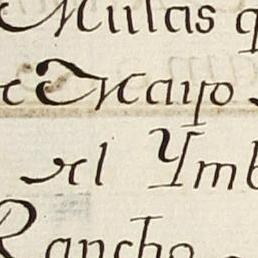 Mulas q
de Mayo
del Ymb
Rancho